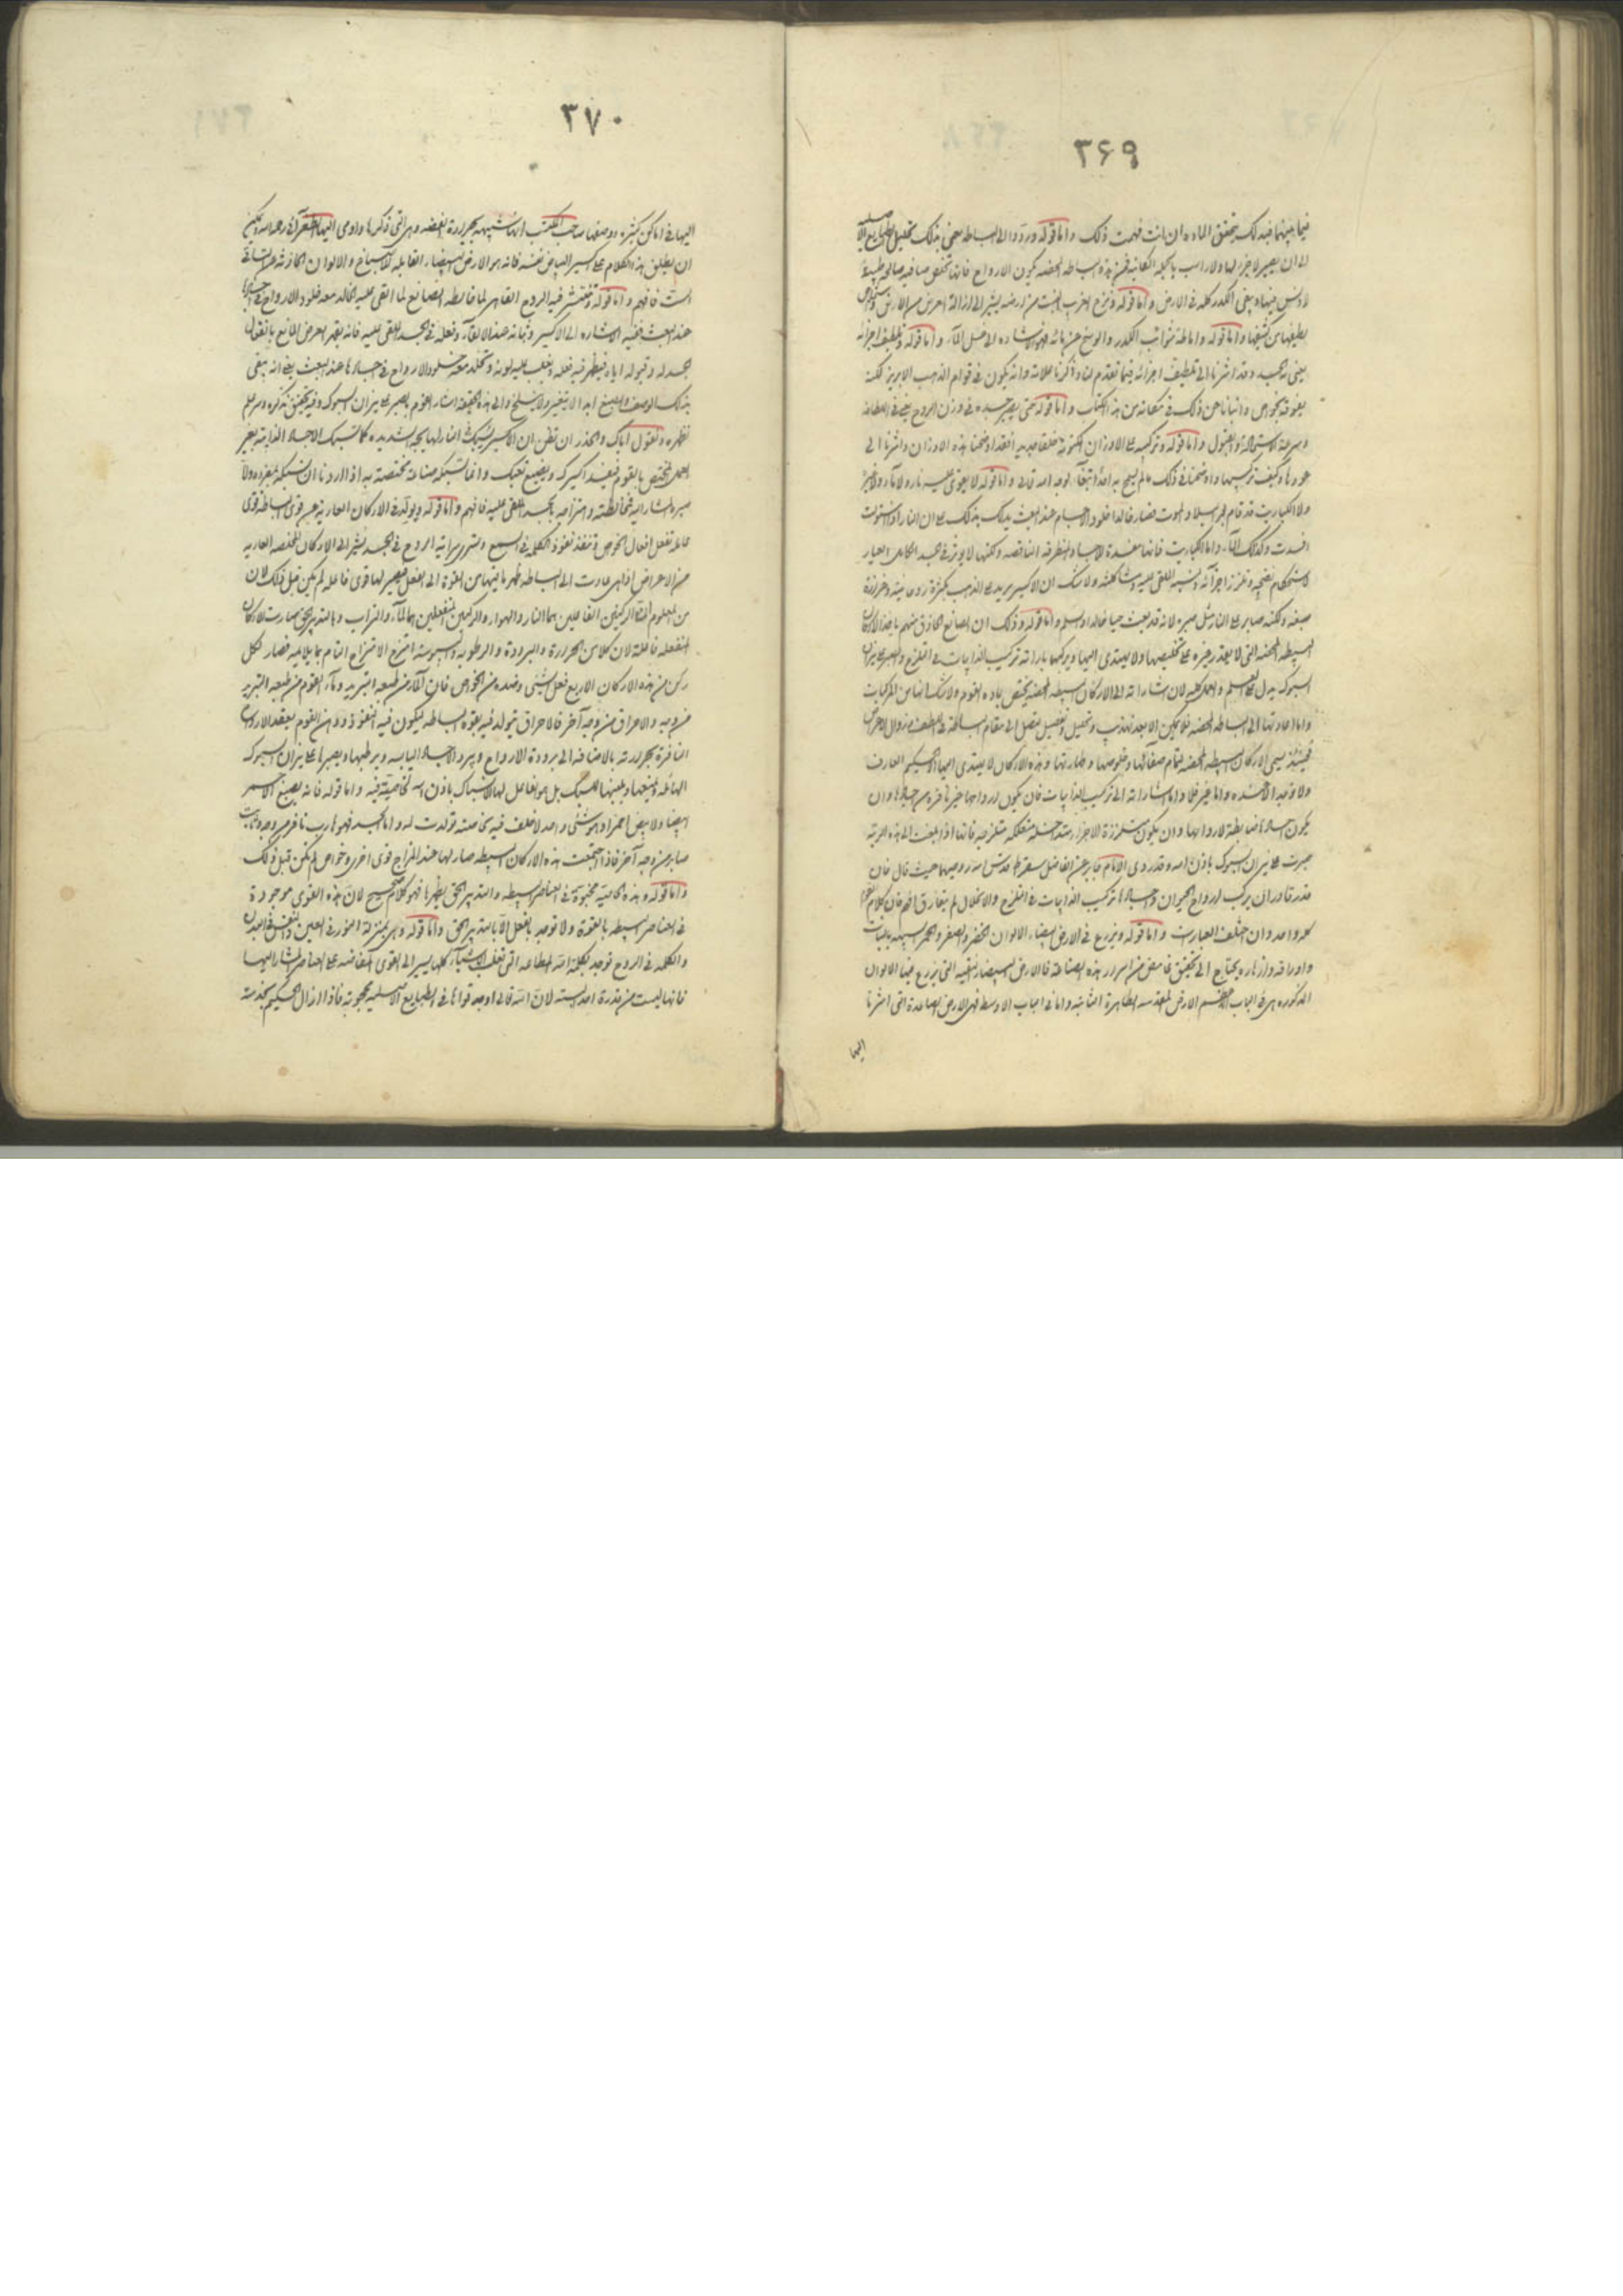 ۳۶۹
فيما بينهما فبذلك يتحقق الماده ان كنت فهمت ذلك واما قوله وردوا الى البساطه يعنى بذلك تحليل الطبايع
الى ان يصير لا جزء لها ولا راسب بالكليه فمن هذه البساطه المحضه يكون الارواح صافيه
لا دنس فيها ويبقى الكدر كله فى الارض واما قوله ونزع الغريب الخبث من ارضه يشير الى ازالة العرض من الارض
لطيفها من كثيفها واما قوله واماطة شوائب الكدر والوسخ عن مائه فهو اشاره الى غسل الماء واما قوله وتلطيف اجزائه
يعنى به الجسد وقد اشرنا الى تلطيف اجزائه فيما تقدم لنا وذكرنا علاماته وانه يكون فى قوام الذهب الابريز لكنه
يفوقه بخواص وانبأنا عن ذلك فى مكانه من هذا الكتاب واما قوله حتى يصير جسده فى وزن الروح يعنى فى اللطافه
وسرعة الاستحالة والقبول واما قوله وتركيبه على الاوزان فقد اوضحنا هذه الاوزان واشرنا الى
وكيف تركيبها واوضحنا فى ذلك ما لم يسمح به احد ابتغاء لوجه الله تعالى واما قوله لا يقوى عليه نار ولا ماء ولا غيره
ولا الكباريت قد قام لم يبق للموت فصار خالدا خلود الاجسام عند البعث يدلك بذلك على ان النار اذا استولت
افسدت وكذلك الماء واما الكباريت فانها مفسدة للاجساد المنطرقه الناقصه ولكنها لا يوثر فى الجسد الكامل العيار
لاستحكام نضجه وتلزز اجزائه ولا شك ان الاكسير يزيد على الذهب بكثرة روحانيته وغزارة
صبغه ولكنه صابر على النار مثل صبره لانه قد بعث حيا خالدا وسلم واما قوله وذلك ان الصانع الحاذق منهم يأخذ الاركان
البسيطه المحضه التى لا يقدر غيره على تخليصها ولا يهتدى اليها ويركبها بارادته تركيب الذايبات فى التلزج والصبر على نيران
السبوك يدل على العلم والعمل كليه لان اشاراته الى الاركان البسيطه المحضه يختص بماده القوم ولا شك انها من المركبات
واما اعادتها الى البساطه المحضه فلا يمكن الا بعد تهذيب وتحليل وتفصيل يتصل الى مقام البساطه فى اللطف وزوال الاعراض
فحينئذ يسمى الاركان البسيطه المحضه لتمام صفائها وخلوصها وطهارتها وهذه الاركان لا يهتدى اليها الا الحكيم العارف
واما غيره فلا واما اشاراته الى تركيب الذايبات فان يكون ارواحها غير نافره من اجسادها وان
يكون اجسادها ضابطة لارواحها وان يكون متلززة الاجزاء متداخلة متلزجه فانها اذا بلغت الى هذه الرتبه
صبرت على نيران السبوك باذن الله وقد روى الامام جابر عن الفاضل سقراط قدس الله روحيهما حيث قال فان
قدر قادر ان يركب ارواح الحيوان واجسادها تركيب الذايبات فى التلزج والانحلال لم يتفارق فافهم فان كلام القوم
كله واحد وان اختلفت العبارات واما قوله ويزرع فى الارض البيضاء الالوان الخضر والصفر والحمر الشبيهه بالنبات
واوراقه وازهاره يحتاج الى تحقيق غامض من اسرار هذه الصناعة فالارض البيضاء النقيه التى يزرع فيها الالوان
المذكوره هى فى الباب الاعظم الارض المقدسه الطاهرة الثابته واما فى الباب الاوسط فهى الارض الصاعدة التى اشرنا
اليها
۳۷۰
اليها فى اماكن كثيره ووصفها صاحب المكتسب انها شبيهه ببرادة الفضه وهى التى ذكرها واومى اليها الطغرائى رحمه الله ويمكن
ان يطلق هذا الكلام على اكسير البياض نفسه فانه هو الارض البيضاء القابله للاصباغ والالوان
فافهم واما قوله وينتشر فيه الروح القاهر لما خالطه الصابغ لما القى عليه الخالد معه خلود الارواح فى اجسادها
عند البعث ففيه الاشاره الى الاكسير وثباته عند الالقاء وفعله فى الجسد الملقى عليه فانه يقهر العرض المانع بانفعال
جسده له وقبوله اياه فيظهر فيه فعله ويغلب عليه لونه ويخلد معه خلود الارواح فى اجسادها عند البعث يعنى انه يبقى
بذلك الوصف والصبغ ابدا لا يتغير ولا ينسلخ والى هذه الحقيقه اشار القوم بالصبر على نيران السبوك وفيه تحقيق نذكره وسر لم
نظهره ونقول اياك والحذر ان تظن ان الاكسير يسبك فى النار لها بحمية شديده كما تسبك الاجساد الذايبه بغير
العمل المختص بالقوم فيفسد اكسيرك ويضيع تعبك وانما تسبيكه صناعة مختصة به اذا اردنا ان نسبكه بمفرده ولا
صبره المشار اليه فمخالطته وامتزاجه بالجسد الملقى عليه فافهم واما قوله ويولد فى الاركان العاريه عن قوى البساطه قوى
فاعلة تفعل افعال الخواص وتنفذ نفوذ الكلمه فى السمع وتسرى سراية الروح فى الجسد يشير الى الاركان المخلصه العاريه
من الاعراض اذا هى عادت الى البساطه ظهر ما فيها من القوة الى الفعل فيصير لها قوى فاعله لم يكن قبل ذلك لان
من المعلوم ان الركنين الفاعلين هما النار والهواء والركنين المنفعلين هما الماء والتراب وبالتدبير الحق صارت الاركان
المنفعله فاعلة لان كلا من الحرارة والبرودة والرطوبه واليبوسه امتزج الامتزاج التام بما يلائمه فصار لكل
ركن من هذه الاركان الاربع فعل الشئ وضده من الخواص فان الماء من طبعه التبريد وماء القوم من طبعه التبريد
من وجه والاحراق من وجه آخر فالاحراق يتولد فيه بقوة البساطه ليكون فيه النفوذ ودهن القوم يعقد الارواح
النافرة بحرارته بالاضافه الى برودة الارواح ويبرد الاجساد اليابسه ويرطبها ويصبرها على نيران السبوك
الهائله ويميعها ويلينها للسبك بل هو الفاعل لها الانسباك باذن الله لخاصية فيه واما قوله فانه يصبغ الاحمر
ابيضا والابيض احمرا وهو شئ واحد لا خلف فيه لخاصيته تولدت له واما الجسد فهو هارب نافر من وجه ثابت
صابر من وجه آخر فاذا اجتمعت هذه الاركان البسيطه صار لها عند المزاج قوى اخرى وخواص لم تكن قبل ذلك
واما قوله وهذه الخاصية مخبوئه فى العناصر البسيطه والتدبير الحق يظهرها فهو كلام صحيح لان هذه القوى موجودة
فى العناصر البسيطه بالقوة ولا توجد بالفعل الا بالتدبير الحق واما قوله وهى بمنزلة النور فى العين والنفس فى البدن
والكلمه فى الروح توجد بكلمة الله المطاعه التى تقلب الاشياء كلها يشير الى القوى الفائضه على العناصر المشار اليها
فانها ليست من قدرة احد البته لان الله تعالى اوجد قواها فى الطبايع الاصليه محجوبه فاذا ازال الحكيم